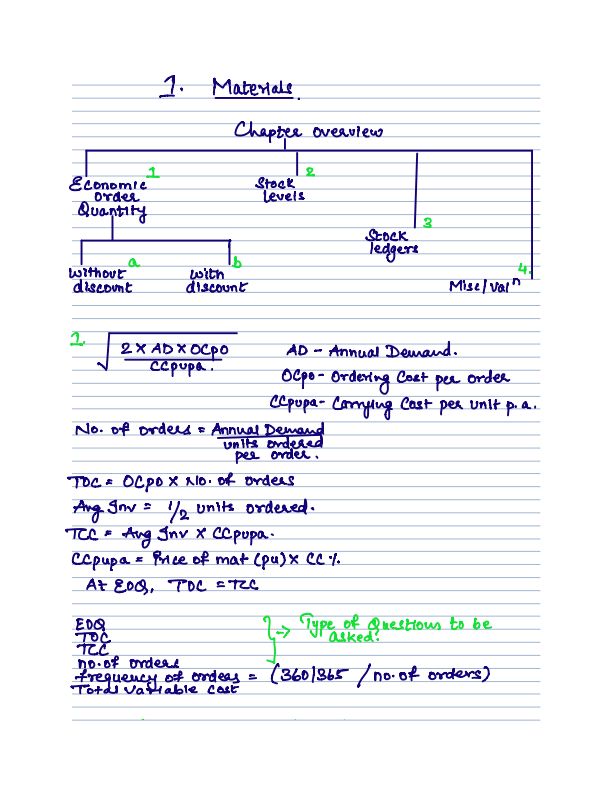 1. Materials.
Chapter overview
1
Economic order Quantity
2
Stock levels
3
Stock ledgers
4.
Misc/Valⁿ
a
Without discount
b
With discount
1. √ 2 X AD X OCpo / CCpupa.
AD - Annual Demand.
OCpo - Ordering Cost per order
CCpupa - Carrying Cost per unit p.a.
No. of orders = Annual Demand
units ordered
per order.
TOC = OCpo X No. of orders
Avg Inv = 1/2 units ordered.
TCC = Avg Inv X CCpupa.
CCpupa = Price of mat (pu) X CC %.
At EOQ, TOC = TCC
EOQ
TOC
TCC
no. of orders
→ Type of Questions to be
asked.
frequency of orders = (360|365 / no. of orders)
Total Variable Cost